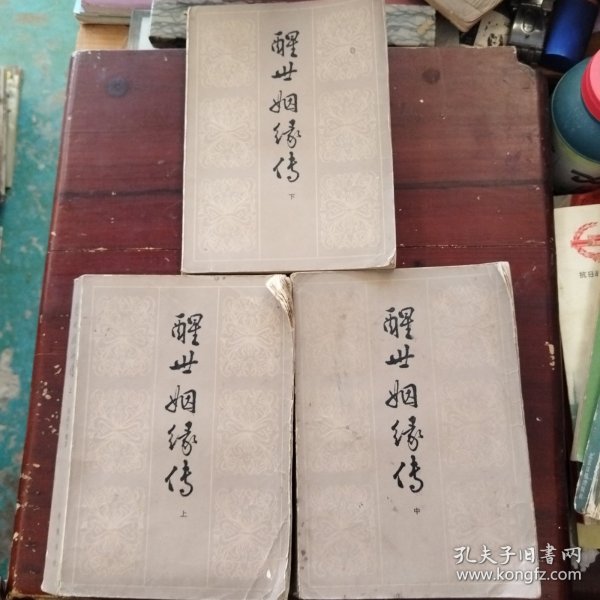 醒世姻缘传
下
醒世姻缘传
上
醒世姻缘传
中
抗日
孔夫子旧书网
www.kongfz.com